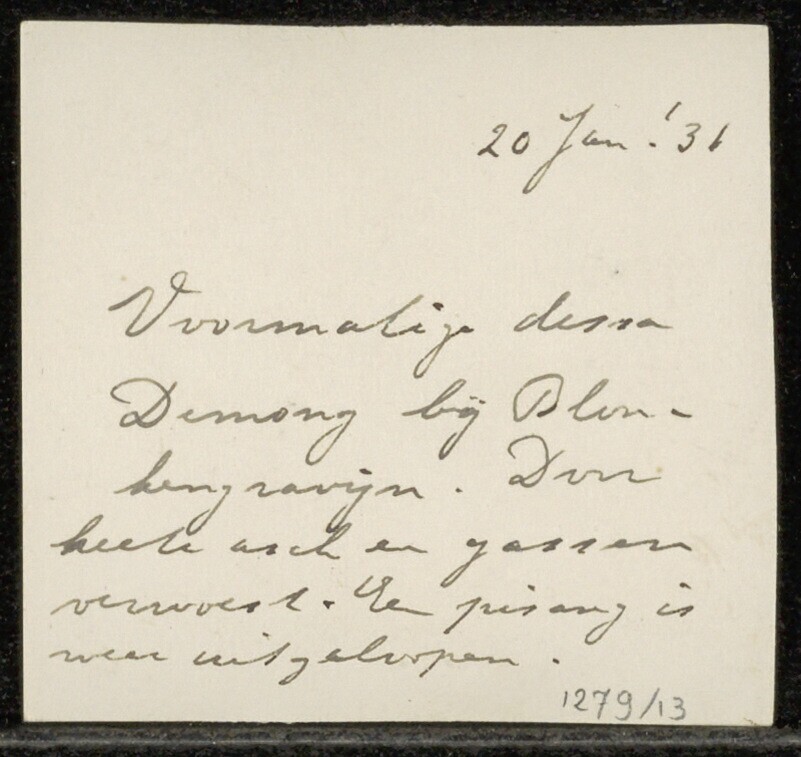 20 Jan. '31
Voormalige dessa
Demong bij Blon-
kengravijn. Door
heete asch en gassen
verwoest. Een pisang is
weer uitgeloopen.
1279/13